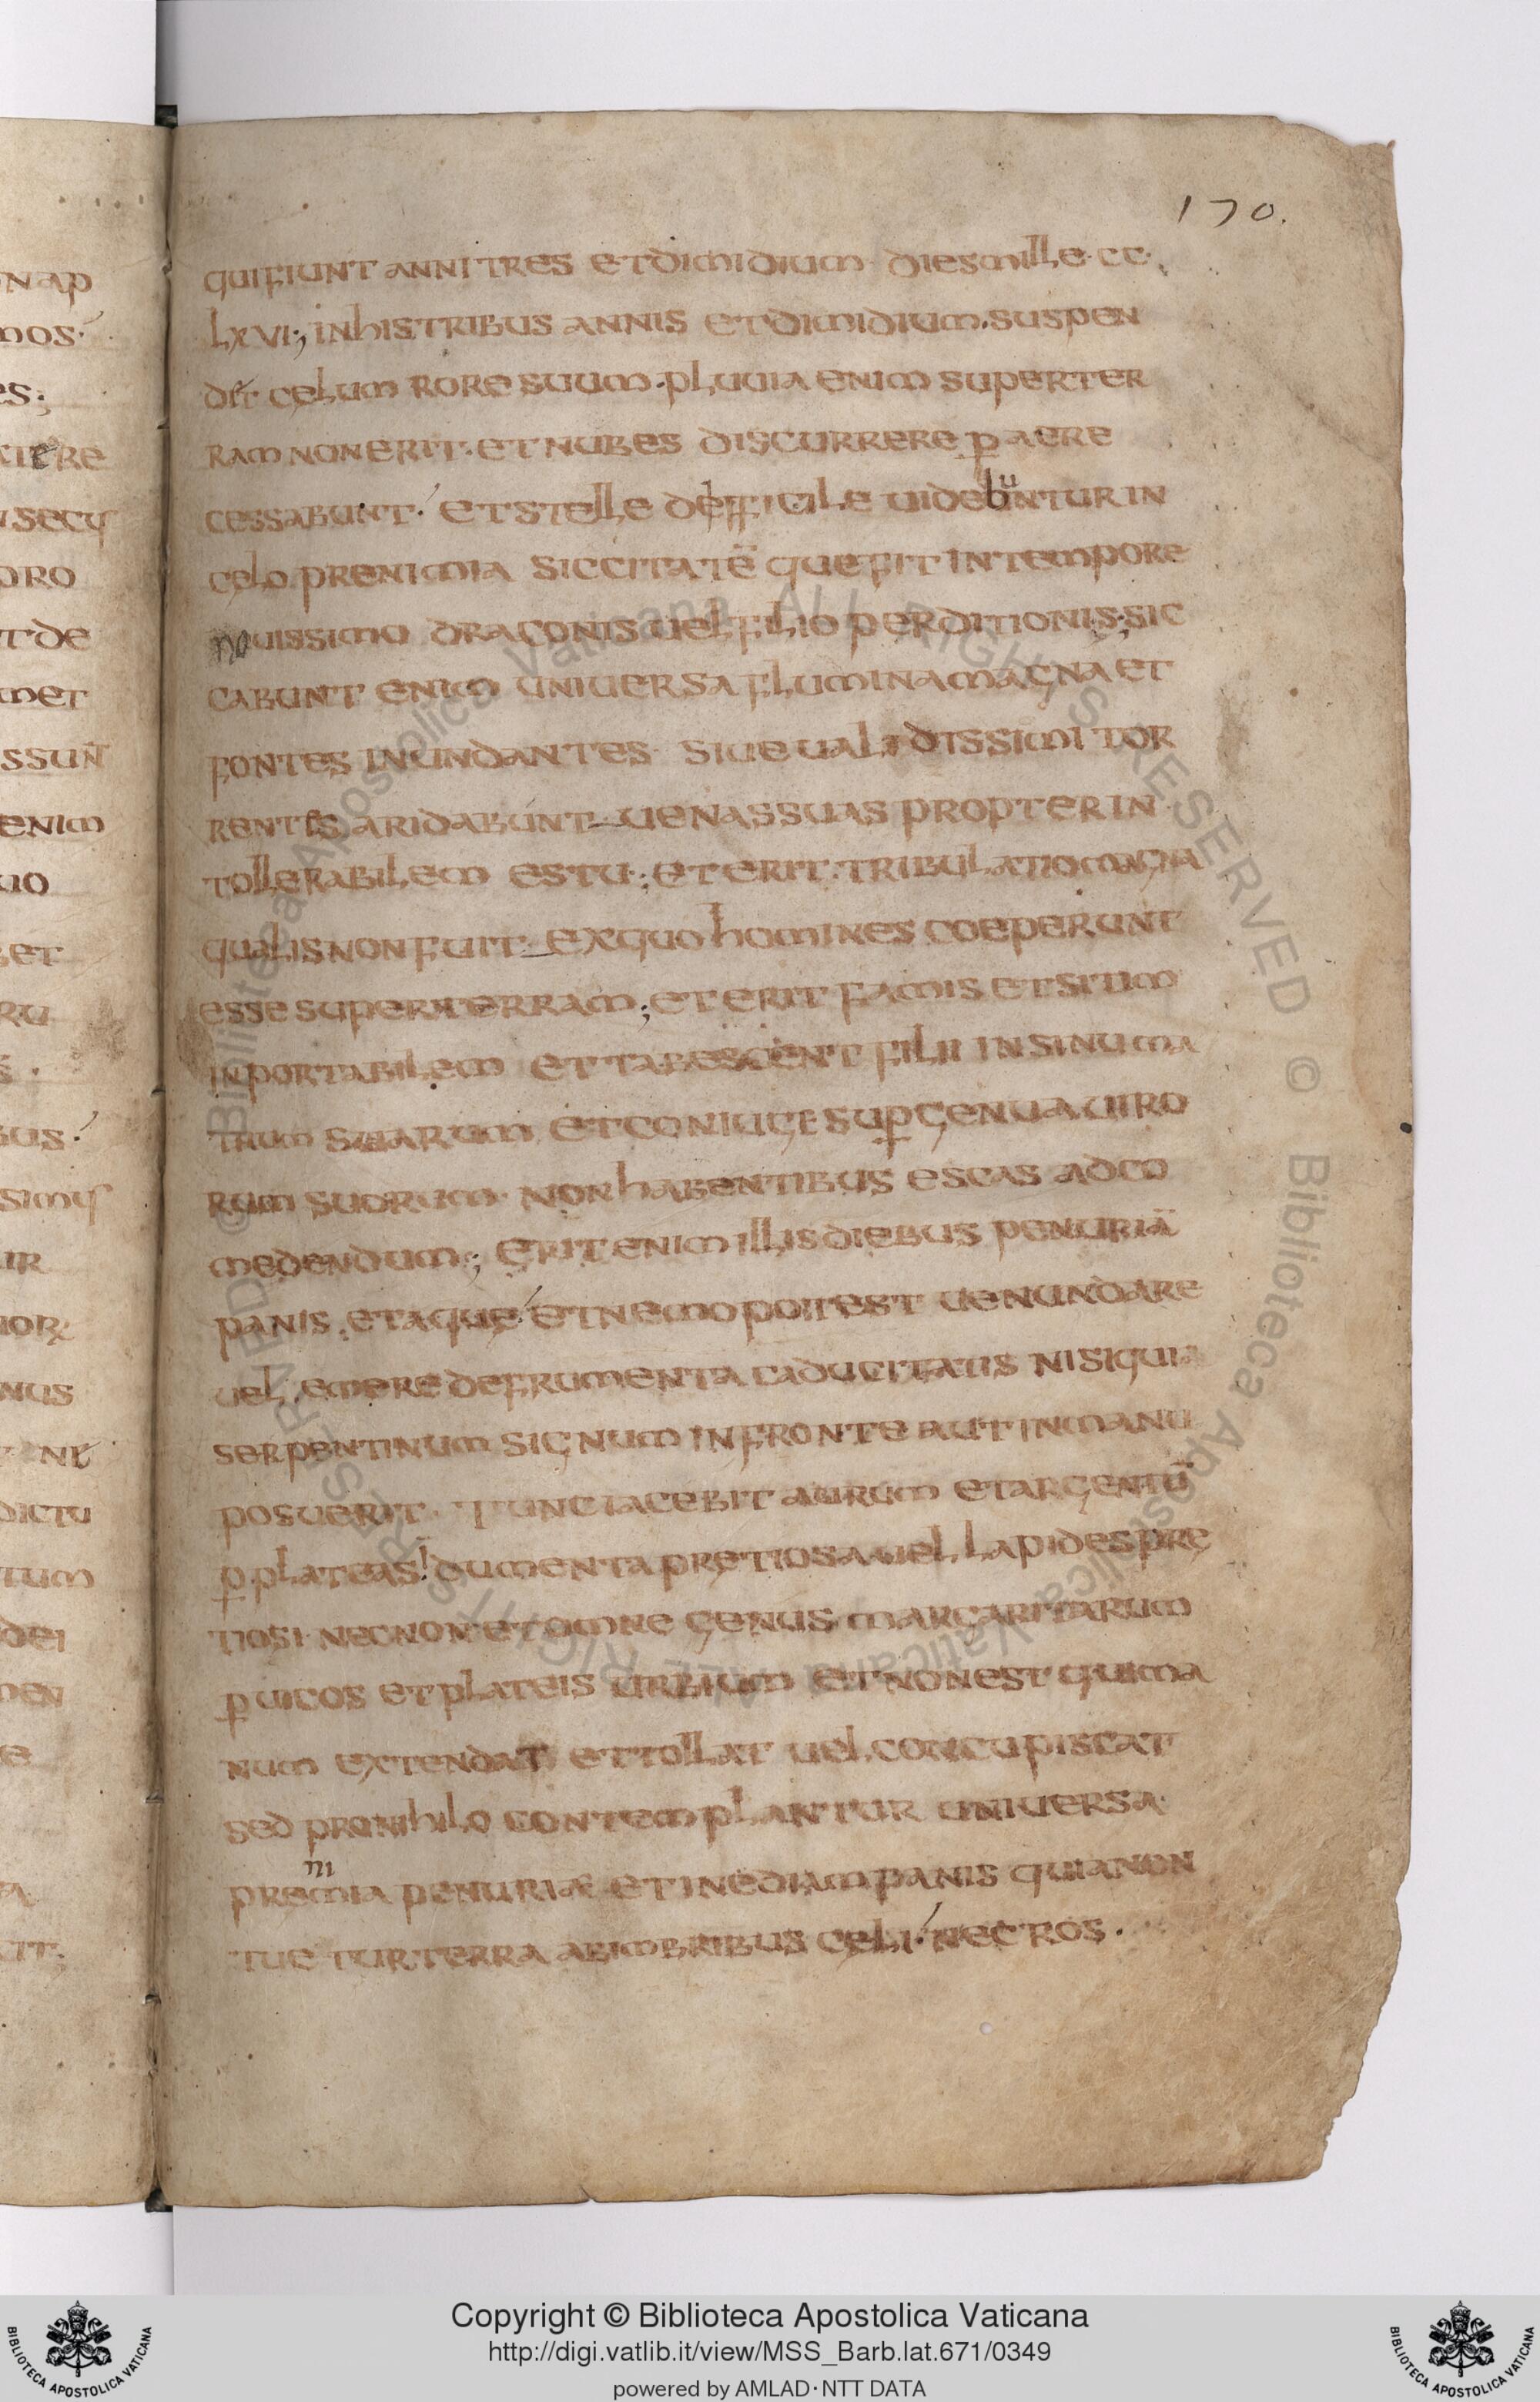 170.
quifiunt anni tres et dimidium dies mille·cc·
lxvi; inhis tribus annis et dimidium·suspen
dit cęlum rore suum·pluuia enim super ter
ram non erit·et nubes discurrere p aere
cessabunt· et stelle deffi cile uidebuntur in
cęlo. prenimia siccitatē que fit in tempore
nouissimo draconis uel filio perditionis; sic
cabunt enim uniuersa flumina magna et
fontes inundantes· siue ualidissimi tor
rentes aridabunt uenas suas propter in
tollerabilem estu; et erit·tribulatio magna
qualis non fuit ex quo homines coeperunt
esse super terram; et erit famis et sitim
inportabilem et tabescent filii in sinu ma
trum suarum et coniuge sup genua uiro
rum suorum· non habentibus escas ad co
medendum; Erit enim illis diebus penuriā
panis. et aque et nemo potest uenundare
uel emere de frumenta caducitatis nisi qui
serpentinum signum in fronte aut in manu
posuerit· Tunc iacebit aurum et argentū
p plateas! dumenta pretiosa uel lapides prę
tiosi· necnon et omne genus margaritarum
p uicos et plateis urbium et non est qui ma
num extendat et tollat uel concupiscat
sed pro nihilo contemplantur uniuersa·
ni
premia penuriæ et inediam panis quia non
tuetur terra ab imbribus cęli· nec ros·
nap
mos·
es;
secus
oro
t de
met
ssunt
enim
uo
et
ru
s·
bus·
simus
ur
nus
ni
dictu
tum
dei
men
e
a
cit;
Copyright © Biblioteca Apostolica Vaticana
http://digi.vatlib.it/view/MSS_Barb.lat.671/0349
powered by AMLAD·NTT DATA
BIBLIOTECA APOSTOLICA VATICANA
BIBLIOTECA APOSTOLICA VATICANA
© Biblioteca Apostolica Vaticana ALL RIGHTS RESERVED © Biblioteca Apostolica Vaticana ALL RIGHTS RESERVED